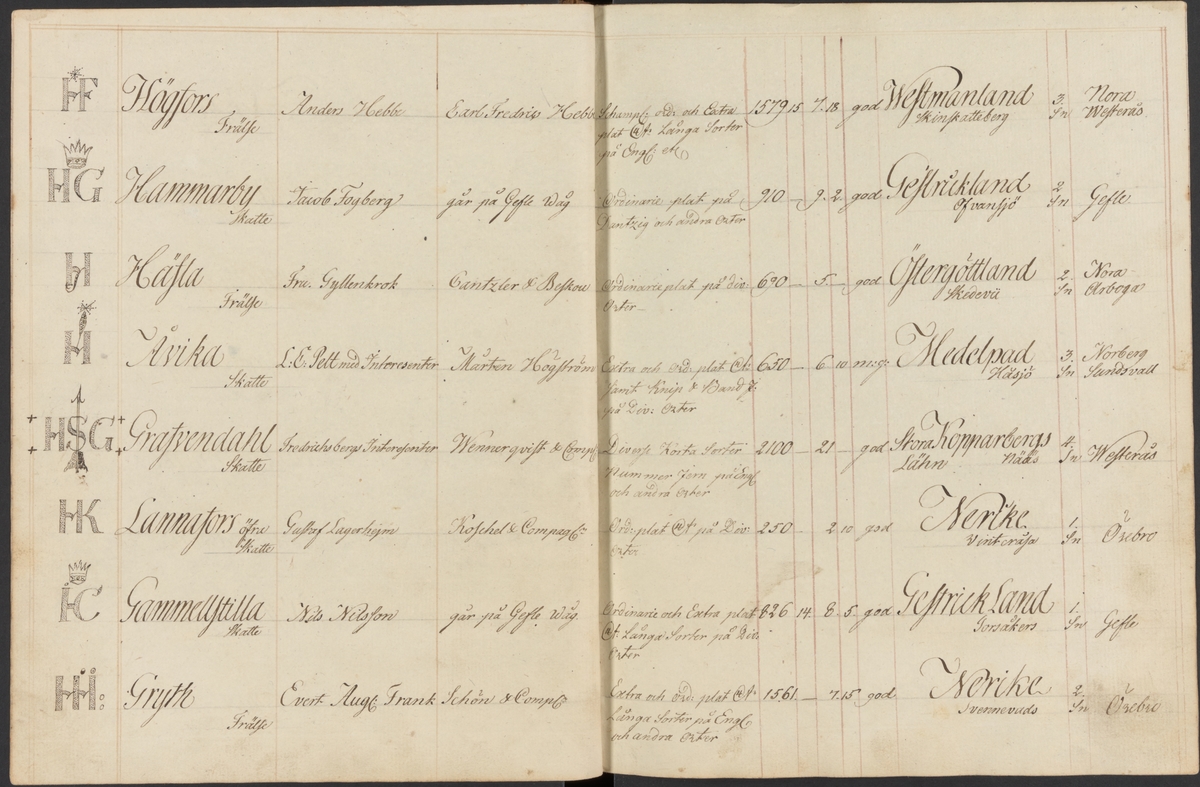 HF Högfors Anders Hebbe Carl Fredric Hebbe Schampl: ord: och Extra 1579 15 7. 18 god Westmanland 3. Nora
Frälse plat @t: Långa Sorter Skinskatteberg Sn Westerås
på Engl: etc
HG Hammarby Jacob Fogberg går på Gefle Wåg Ordinarie plat på 910 — 9. 2. god Gestrickland 2 Gefle
Skatte Dantzig och andra Orter Ofvansjö Sn
H Häfla Fru. Gyllenkrok Cantzler & Beskou Ordinarie plat på div: 690 — 5. — god Östergöttland 2. Nora
Frälse Orter Skedevi Sn Arboga
H Åvika L: C: Pelt med Interesenter Mårten Högström Extra och ord. plat @t: 650 — 6 10 m:g: Medelpad 3. Norberg
Skatte samt Knip & Band J. Häsjö Sn Sundsvall
på Div: Orter
HSG Grafvendahl Fredrichsbergs Interesenter Wennerqvist & Comp: Diverse Korta Sorter 2100 — 21 — god Stora Kopparbergs 4. Westerås
Skatte Nummer Jern på Engl. Lähn Nåås Sn
och andra Orter
HK Lannafors öfre Gustaf Lagerhejm Koschel & Compag: Ord: plat @t på Div: 250 — 2 10 god Nerike 1. Örebro
Skatte Orter Vinteråsa Sn
HC Gammellstilla Nils Nilsson går på Gefle Wåg. Ordinarie och Extra plat 826 14. 8. 5. god GestrickLand 1. Gefle
Skatte @t: Långa Sorter på Div: Torsåkers Sn
Orter
HH: Gryth Evert Aug: Frank Schön & Comp: Extra och ord: plat @t: 1561 — 7. 15 god Nerike 2. Örebro
Frälse Långa Sorter på Engl: Svennevads Sn
och andra Orter